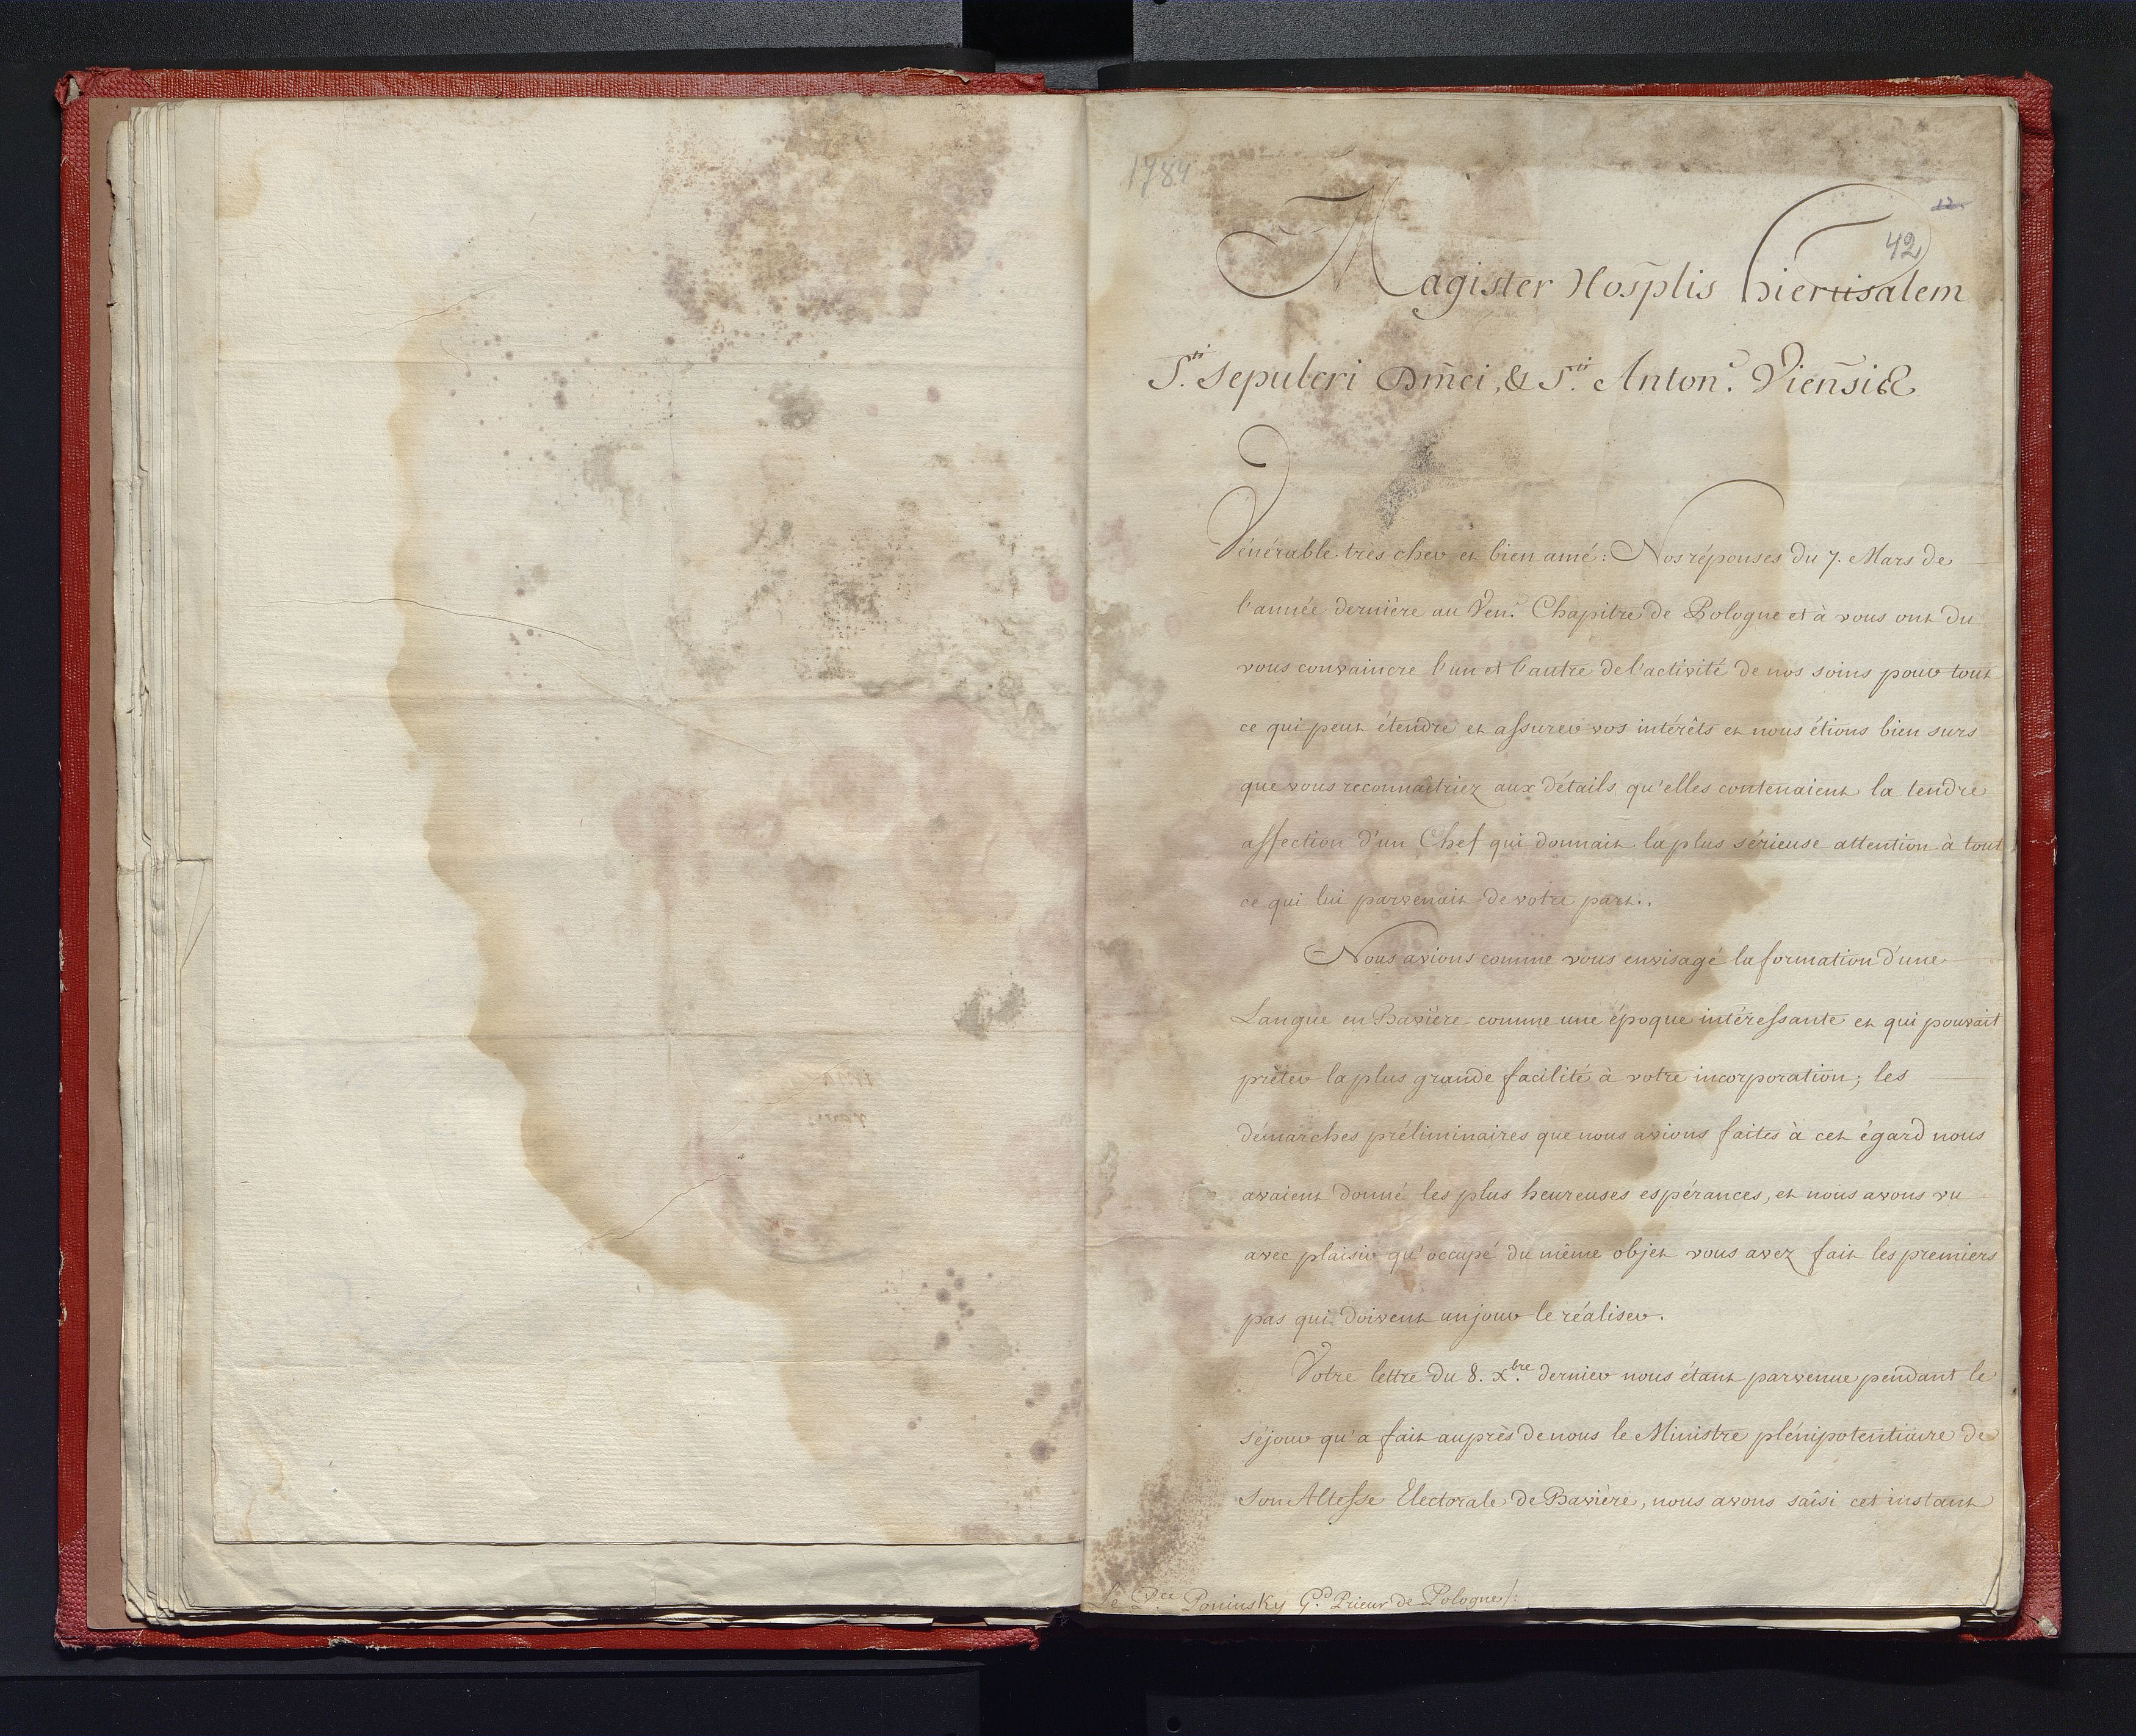 1784
12.
42
Magister Hosp̃lis hierusalem
S.ti Sepulcri Dm̃ci, & S.ti Anton.s Vieñsis
Vénérable très cher et bien amé: Nos réponses du 7. Mars de
l'année dernière au Ven.e Chapitre de Pologne et à vous ont du
vous convaincre l'un et l'autre de l'activité de nos soins pour tout
ce qui peut étendre et assurer vos intérêts et nous étions bien surs
que vous reconnaîtriez aux détails qu'elles contenaient la tendre
affection d'un Chef qui donnait la plus sérieuse attention à tout
ce qui lui parvenait de votre part.
Nous avions comme vous envisagé la formation d'une
Langue en Bavière comme une époque intéressante et qui pouvait
prêter la plus grande facilité à votre incorporation; les
démarches préliminaires que nous avions faites à cet égard nous
avaient donné les plus heureuses espérances, et nous avons vu
avec plaisir qu'occupé du même objet vous avez fait les premiers
pas qui doivent un jour le réaliser.
Votre lettre du 8. X.bre dernier nous étant parvenue pendant le
séjour qu'a fait auprès de nous le Ministre plénipotentiaire de
Son Altesse Electorale de Bavière, nous avons saisi cet instant
Le P.ce Poninsky G.d Prieur de Pologne/: